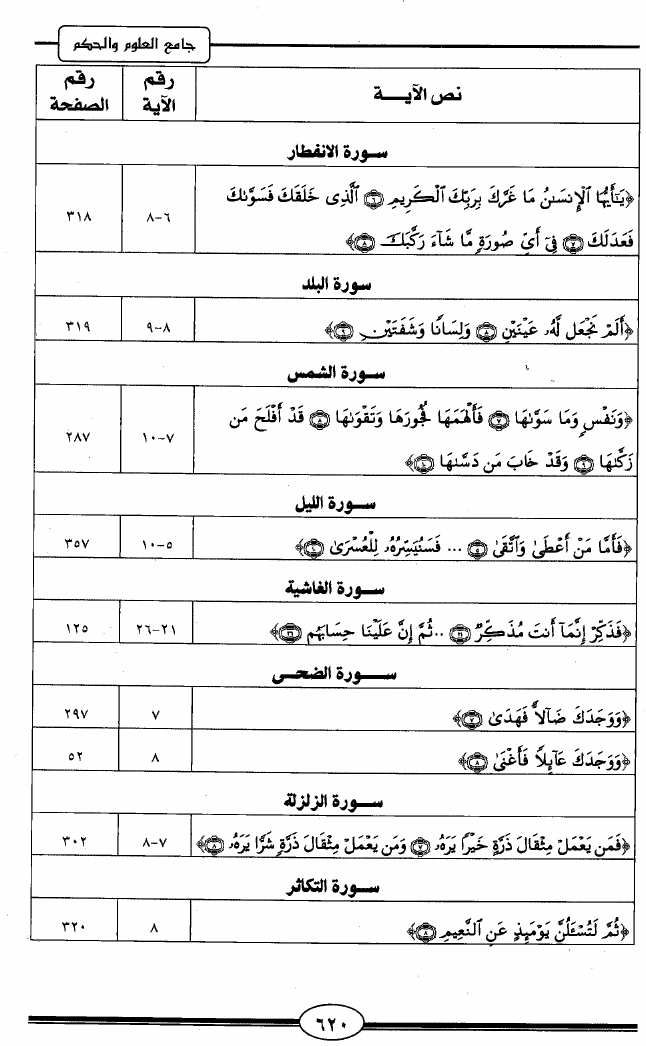 جامع العلوم والحكم
نص الآيــة	رقم الآية	رقم الصفحة
سورة الانفطار
﴿يَٰٓأَيُّهَا ٱلۡإِنسَٰنُ مَا غَرَّكَ بِرَبِّكَ ٱلۡكَرِيمِ ۝٦ ٱلَّذِي خَلَقَكَ فَسَوَّىٰكَ
فَعَدَلَكَ ۝٧ فِيٓ أَيِّ صُورَةٖ مَّا شَآءَ رَكَّبَكَ ۝٨﴾	٦-٨	٣١٨
سورة البلد
﴿أَلَمۡ نَجۡعَل لَّهُۥ عَيۡنَيۡنِ ۝٨ وَلِسَانٗا وَشَفَتَيۡنِ ۝٩﴾	٨-٩	٣١٩
سورة الشمس
﴿وَنَفۡسٖ وَمَا سَوَّىٰهَا ۝٧ فَأَلۡهَمَهَا فُجُورَهَا وَتَقۡوَىٰهَا ۝٨ قَدۡ أَفۡلَحَ مَن
زَكَّىٰهَا ۝٩ وَقَدۡ خَابَ مَن دَسَّىٰهَا ۝١٠﴾	٧-١٠	٢٨٧
سورة الليل
﴿فَأَمَّا مَنۡ أَعۡطَىٰ وَٱتَّقَىٰ ۝٥ ... فَسَنُيَسِّرُهُۥ لِلۡعُسۡرَىٰ ۝١٠﴾	٥-١٠	٣٥٧
سورة الغاشية
﴿فَذَكِّرۡ إِنَّمَآ أَنتَ مُذَكِّرٞ ۝٢١ ..ثُمَّ إِنَّ عَلَيۡنَا حِسَابَهُم ۝٢٦﴾	٢١-٢٦	١٢٥
سورة الضحى
﴿وَوَجَدَكَ ضَآلّٗا فَهَدَىٰ ۝٧﴾	٧	٢٩٧
﴿وَوَجَدَكَ عَآئِلٗا فَأَغۡنَىٰ ۝٨﴾	٨	٥٢
سورة الزلزلة
﴿فَمَن يَعۡمَلۡ مِثۡقَالَ ذَرَّةٍ خَيۡرٗا يَرَهُۥ ۝٧ وَمَن يَعۡمَلۡ مِثۡقَالَ ذَرَّةٖ شَرّٗا يَرَهُۥ ۝٨﴾	٧-٨	٣٠٢
سورة التكاثر
﴿ثُمَّ لَتُسۡـَٔلُنَّ يَوۡمَئِذٍ عَنِ ٱلنَّعِيمِ ۝٨﴾	٨	٣٢٠
٦٢٠